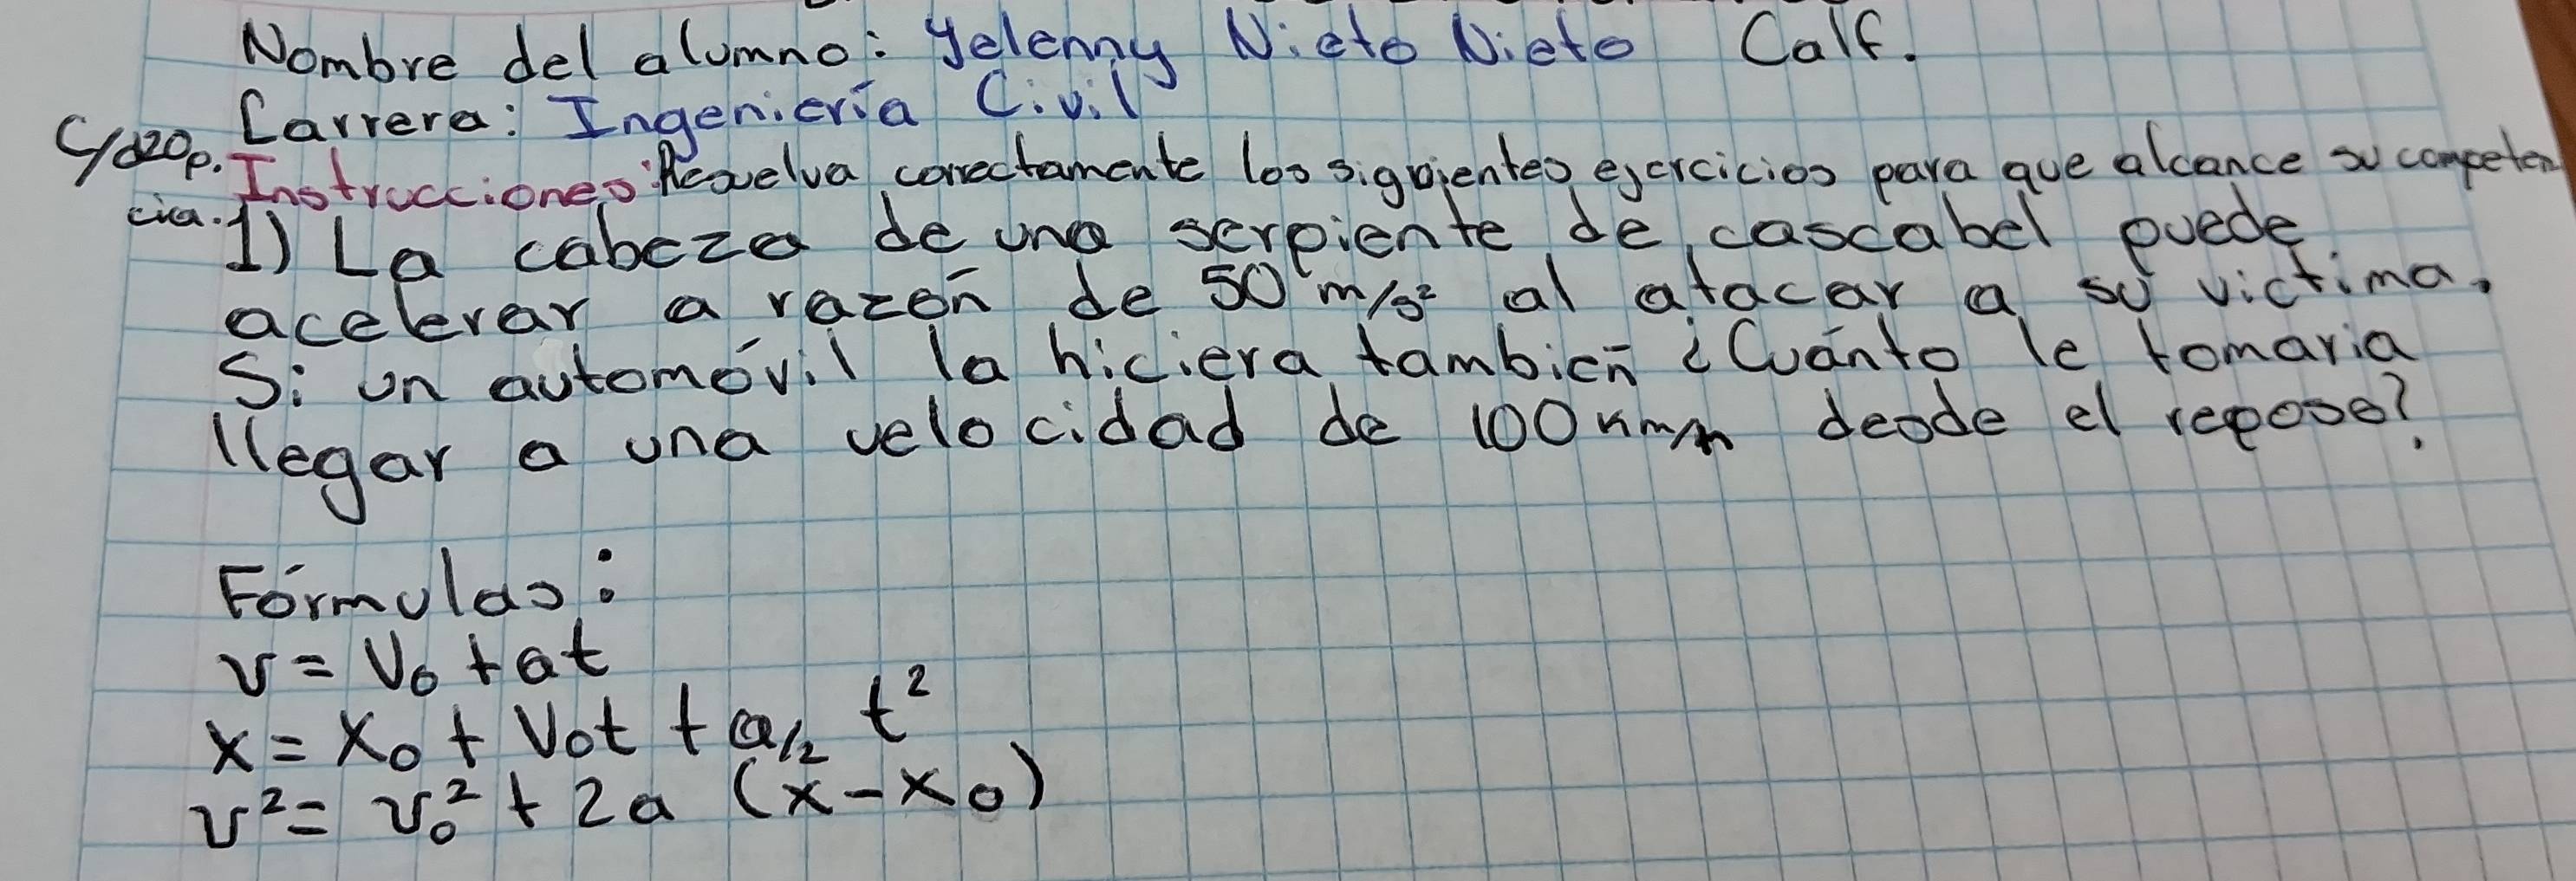 Nombre del alumno: Yelenny Nieto Nieto Calf.
Carrera: Ingeniería Civil
C/d20p. Instrucciones: Resuelva correctamente los siguientes ejercicios para que alcance su competen
cia. 1) La cabeza de una serpiente de cascabel puede
acelerar a razón de 50 m/s² al atacar a su victima.
Si un automóvil la hiciera también ¿Cuánto le tomaria
llegar a una velocidad de 100 km/h desde el reposo?
Fórmulas:
v = V₀ + at
x = x₀ + V₀t + a/2 t²
v² = v₀² + 2a (x - x₀)